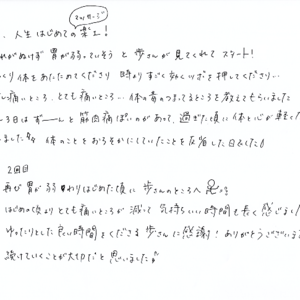 マッサージ
、人生はじめての楽！
れがぬけず 胃が弱っていそう と 歩さんが 見てくれて スタート！
くり 体をあたためてくださり 時々すごく効くツボを押してくださり…
痛いところ、とても痛いところ… 体の毒のつまってるところを教えてもらいました
3日は ずーーんと 筋肉痛ぽいのがあって、過ぎた頃に 体と心が軽く
ました 体のことを おろそかにしていたことを 反省した日でした
2回目
再び 胃が弱りはじめた頃に 歩さんのところへ
はじめの頃より とても痛いところが 減って 気持ちいい時間を長く感じまし
ゆったりとした 良い時間をくださる 歩さんに 感謝！ ありがとうございま
続けていくことが大切だと 思いました♪